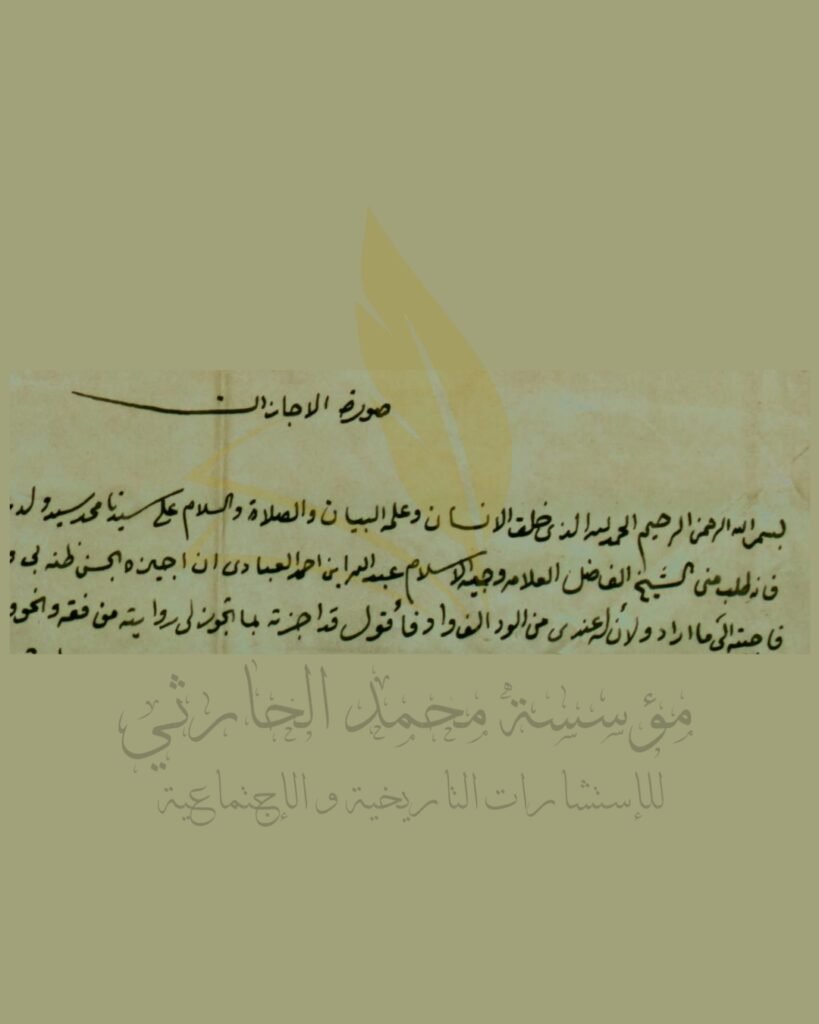 صورة الاجازات
بسم الله الرحمن الرحيم الحمد لله الذي خلق الانسان وعلمه البيان والصلاة والسلام على سيدنا محمد سيد ولد
فانه طلب منى الشيخ الفاضل العلامه وجيه الاسلام عبد الله ابن احمد العبادى ان اجيزه لحسن ظنه بى
فاجبته الى ما اراد ولأن له عندى من الود الف واد فأقول قد اجزته بما تجوز لى روايته من فقه ونحو
مؤسسة محمد الحارثي
للإستشارات التاريخية و الإجتماعية